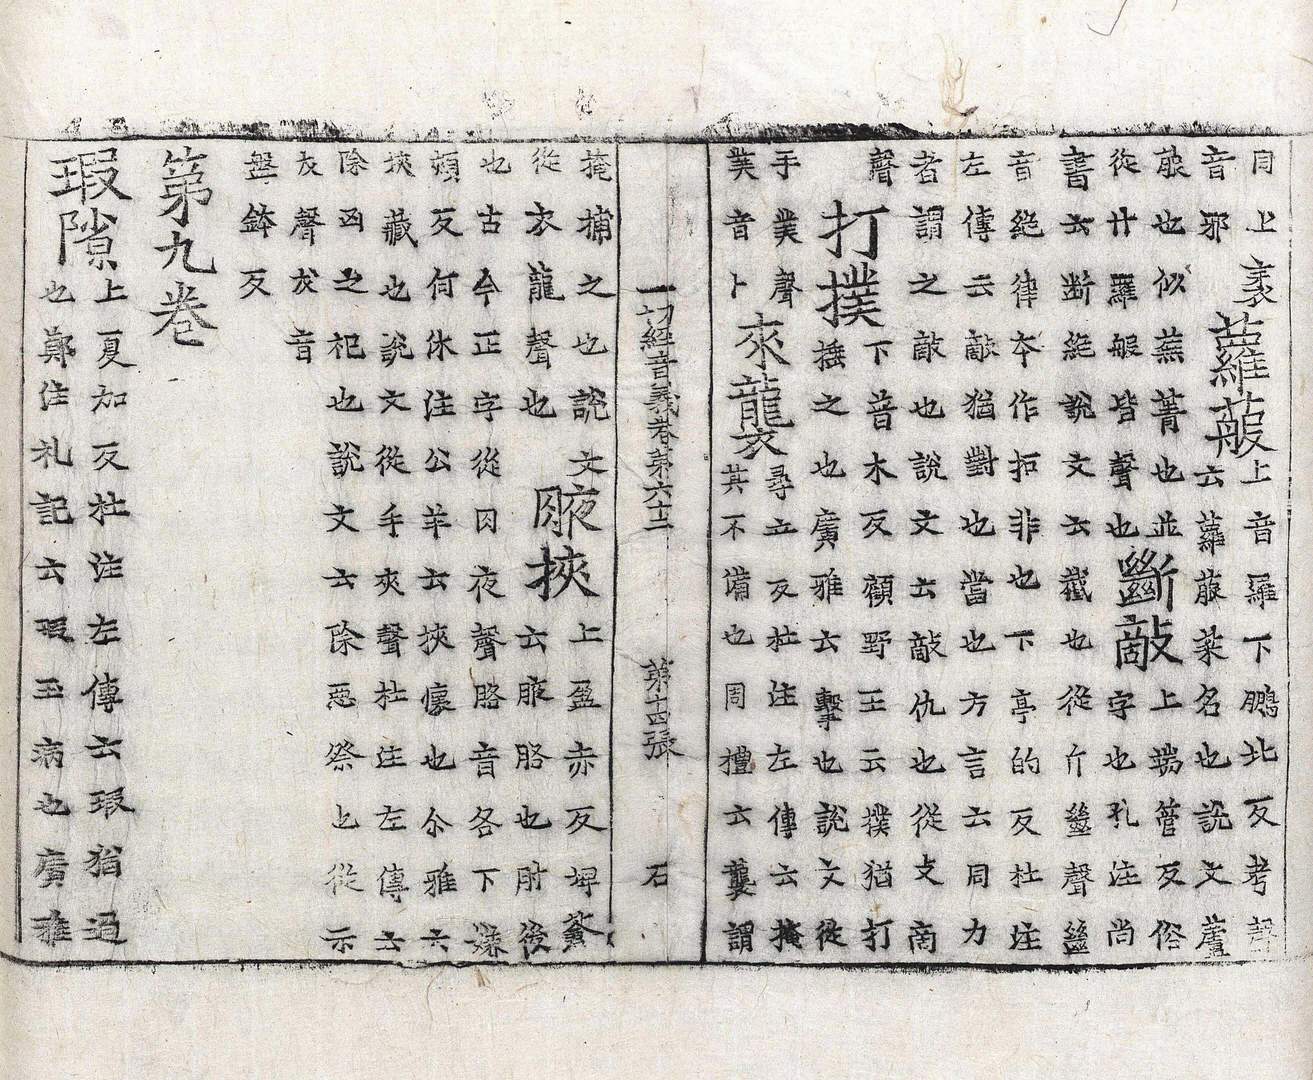 同上義蘿菔上音羅下鵬北反考聲
音邪云蘿菔菜名也說文蘆
菔也似蕪菁也並上端管反俗
從廿羅服皆聲也斷敵字也孔注尚
書云断絕說文云截也從斤㡭聲㡭
音絕律夲作拓非也下亭的反杜注
左傳云敵猶對也當也方言云同力
者謂之敵也說文云敵仇也從攴商
聲打撲下音木反顧野王云撲猶打
也捶之也廣雅云擊也說文從
手菐聲來襲尋立反杜注左傳云掩
菐音卜其不備也周禮云襲謂
一切經音義卷第六十二 第十四張 石
掩捕之也說文腋挾上盈赤反埤蒼
從衣龍聲也云腋胳也肘後
也古今正字從肉夜聲胳音各下嫌
頰反何休注公羊云挾懷也尒雅云
挾藏也說文從手夾聲杜注左傳云
除凶之祀也說文云除惡祭也從示
犮聲犮音
盤鉢反
第九卷
瑕隙上夏加反杜注左傳云瑕猶過
也鄭注礼記云瑕玉病也廣雅